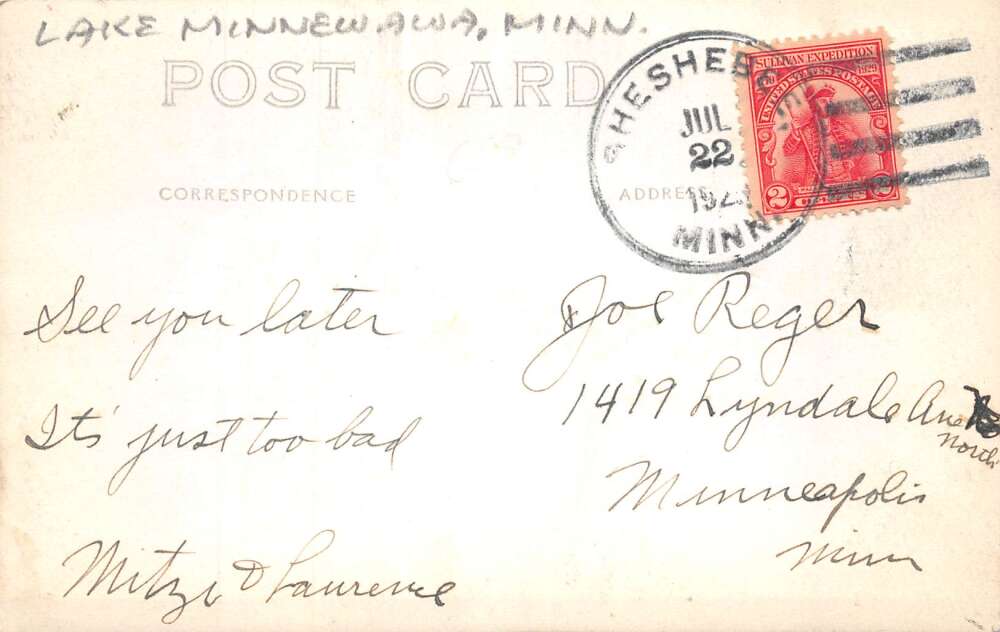 LAKE MINNEWAWA, MINN.
POST CARD
CORRESPONDENCE
ADDRESS
SHESHEBE
JUL
22
MINN
SULLIVAN EXPEDITION
1929
UNITED STATES POSTAGE
2 CENTS 2
See you later
It's just too bad
Mitzi & Laurence
Joe Reger
1419 Lyndale Ave
North
Minneapolis
Minn